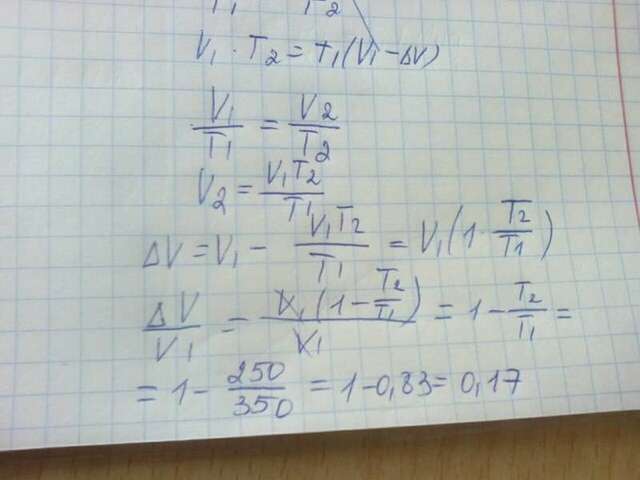 T₁ T₂
V₁ · T₂ = T₁(V₁ - ΔV)
V₁/T₁ = V2/T2
V₂ = V₁T₂/T₁
ΔV = V₁ - V₁T₂/T₁ = V₁(1 · T₂/T₁)
ΔV/V₁ = V₁(1 - T₂/T₁)/V₁ = 1 - T₂/T₁ =
= 1 - 250/350 = 1 - 0,83 = 0,17